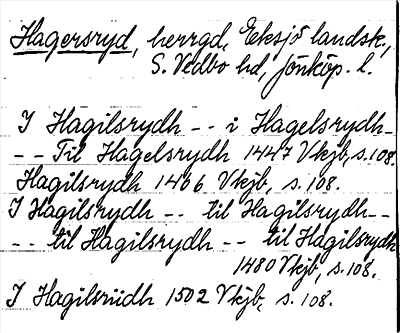 Hagersryd, herrgd, Eksjö landsk.,
S. Vedbo hd, Jönköp. l.
I Hagilsrydh -- i Hagelsrydh-
-- Til Hagelsrydh 1447 Vkjb, s.108.
Hagilsrydh 1406 Vkjb, s.108.
I Hagilsrydh -- til Hagilsrydh--
-- til Hagilsrydh -- til Hagilsrydh
1480 Vkjb, s.108.
I Hagilsriidh 1502 Vkjb, s.108.